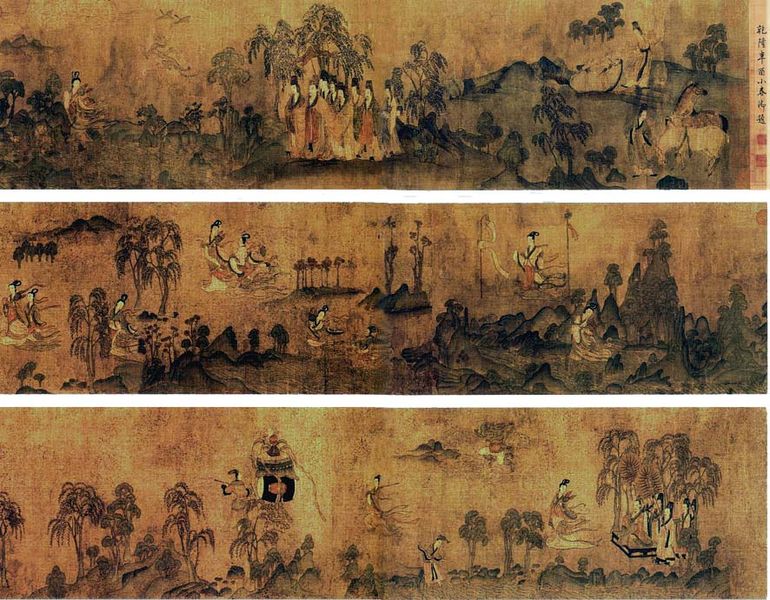 乾隆辛酉小春御題